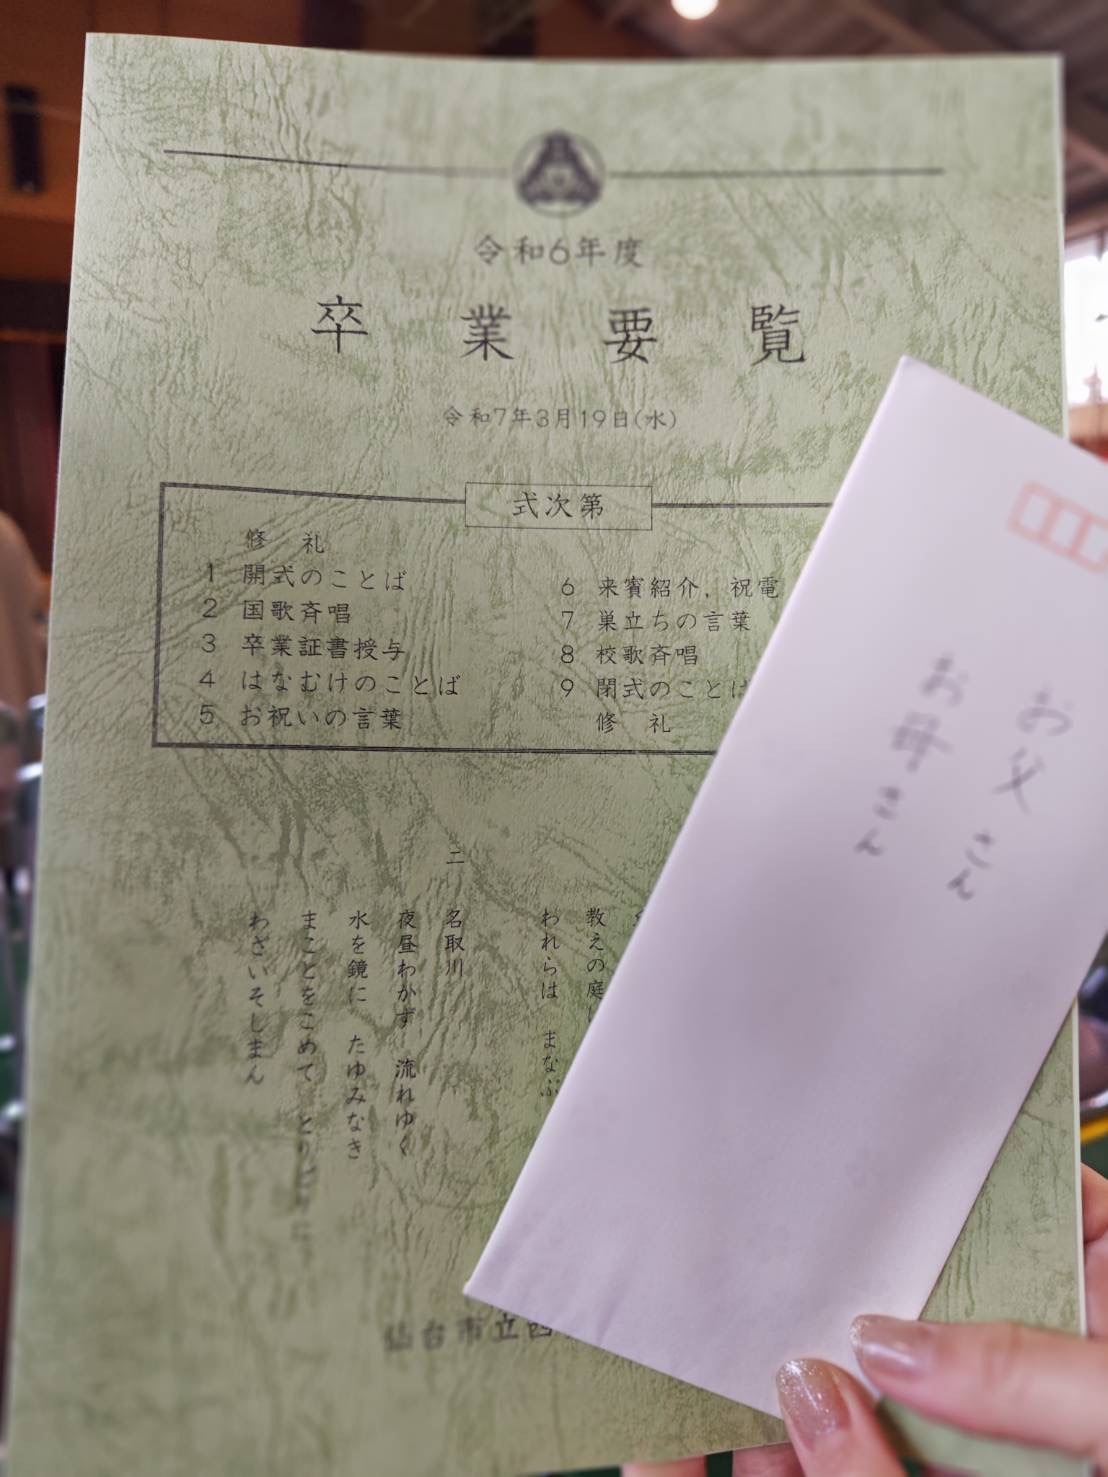 令和6年度
卒業要覧
令和7年3月19日(水)
式次第
修 礼
1 開式のことば
2 国歌斉唱
3 卒業証書授与
4 はなむけのことば
5 お祝いの言葉
6 来賓紹介,祝電
7 巣立ちの言葉
8 校歌斉唱
9 閉式のことば
修 礼
教えの庭に
われらは まなぶ
二
名取川
夜昼わかず 流れゆく
水を鏡に たゆみなき
まことをこめて
わざいそしまん
仙台市立西
お父さん
お母さん